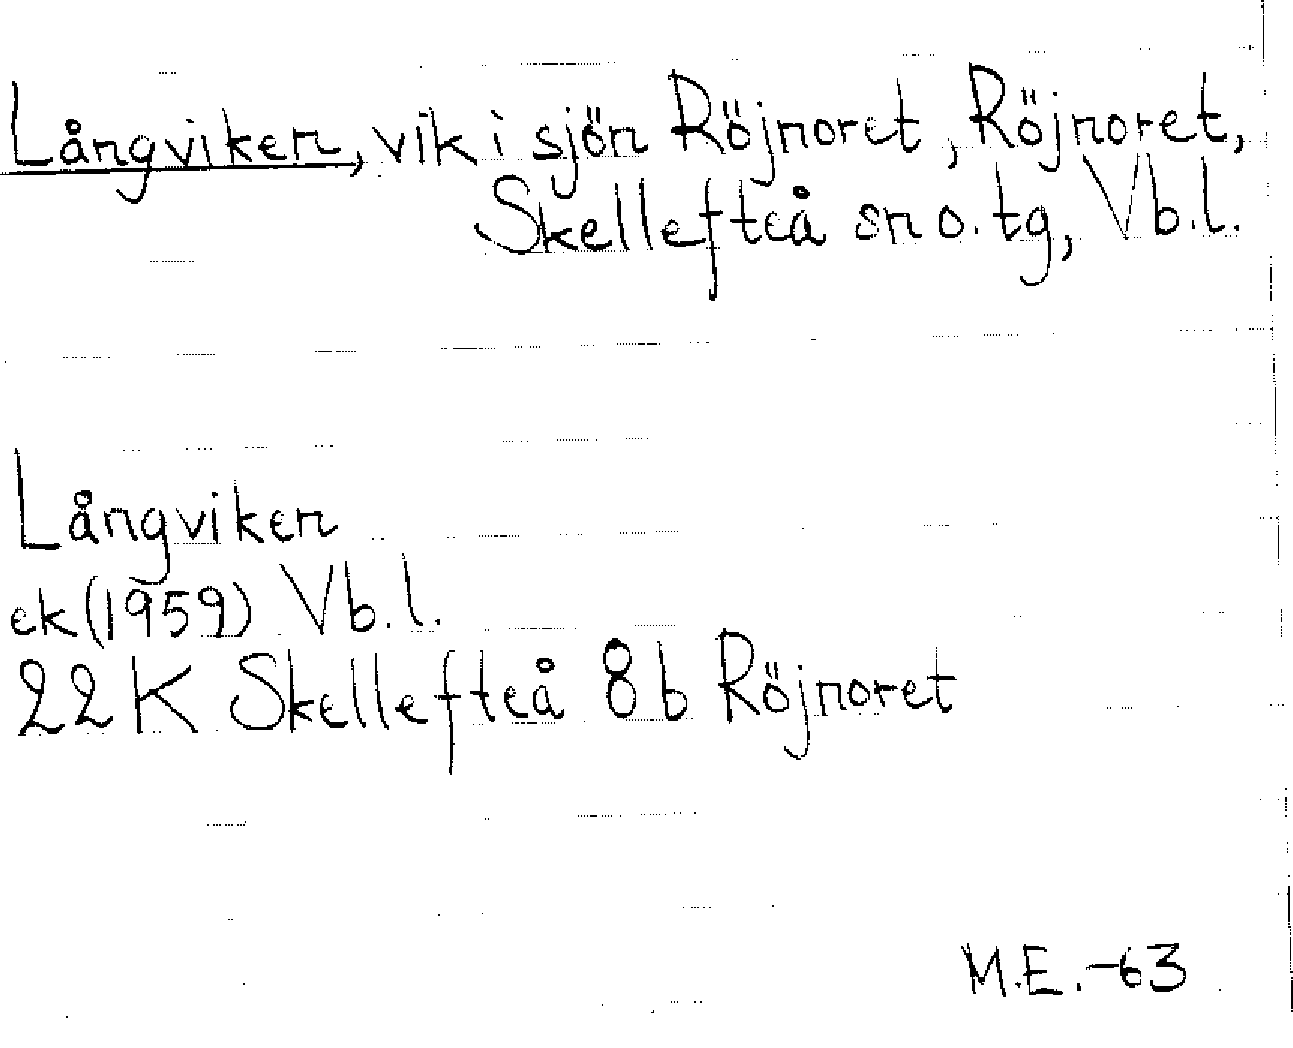 Långviken, vik i sjön Röjnoret, Röjnoret,
Skellefteå sn o. tg, Vb.l.
Långviken
ek (1959) Vb.l.
22 K Skellefteå 8b Röjnoret
M.E.-63